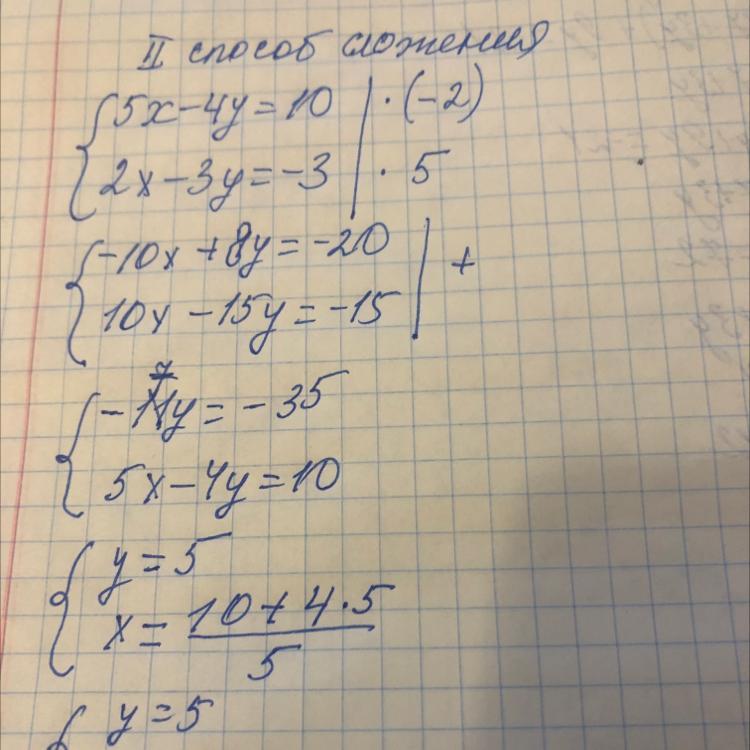 II способ сложения
5x-4y=10 | · (-2)
2x-3y=-3 | · 5
-10x+8y=-20 | +
10x-15y=-15
-7y=-35
5x-4y=10
y=5
x=\frac{10+4·5}{5}
y=5